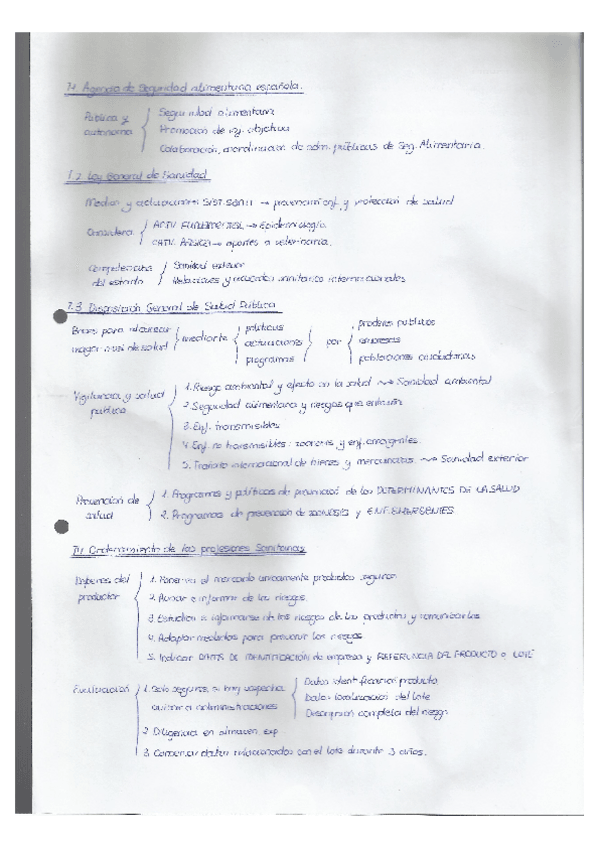 7.1 Agencia de Seguridad alimentaria española.
Pública y autónoma
Seguridad alimentaria
Promoción de inf. objetiva
Colaboración, coordinación de adm. públicas de Seg. Alimentaria.
7.2 Ley General de Sanidad
Medios y actuaciones SIST. SANIT → prevención enf. y protección de salud
Considera
ACTV. FUNDAMENTAL → Epidemiología
→ aportes a veterinaria.
Competencias del estado
Sanidad exterior
Relaciones y acuerdos sanitarios internacionales
7.3 Disposición General de Salud Pública
Bases para alcanzar mayor nivel de salud
mediante
políticas
actuaciones
programas
por
poderes públicos
empresas
poblaciones ciudadanas
Vigilancia y salud pública
1. Riesgo ambiental y efecto en la salud → Sanidad ambiental
2. Seguridad alimentaria y riesgos que
3. Enf. transmisibles
4. Enf. no transmisibles: zoonosis y enf. emergentes.
5. Tránsito internacional de bienes y mercancías. → Sanidad exterior
Prevención de salud
1. Programas y políticas de prevención de los DETERMINANTES DE LA SALUD
2. Programas de prevención de ZOONOSIS y ENF. EMERGENTES
de las profesiones Sanitarias
Deberes del productor
1. Poner en el mercado únicamente productos seguros
2. Avisar e informar de los riesgos
3. Estudiar e informarse de los riesgos de los productos y comunicarlos
4. Adoptar medidas para prevenir los riesgos
5. Indicar DATOS DE IDENTIFICACIÓN de empresa y REFERENCIA DEL PRODUCTO o LOTE
1. Solo seguros, si hay sospecha avisar a administraciones
Datos identificación producto
Datos localización del lote
Descripción completa del riesgo
2. Diligencia en almacen exp.
3. Conservar datos relacionados con el lote durante 3 años.